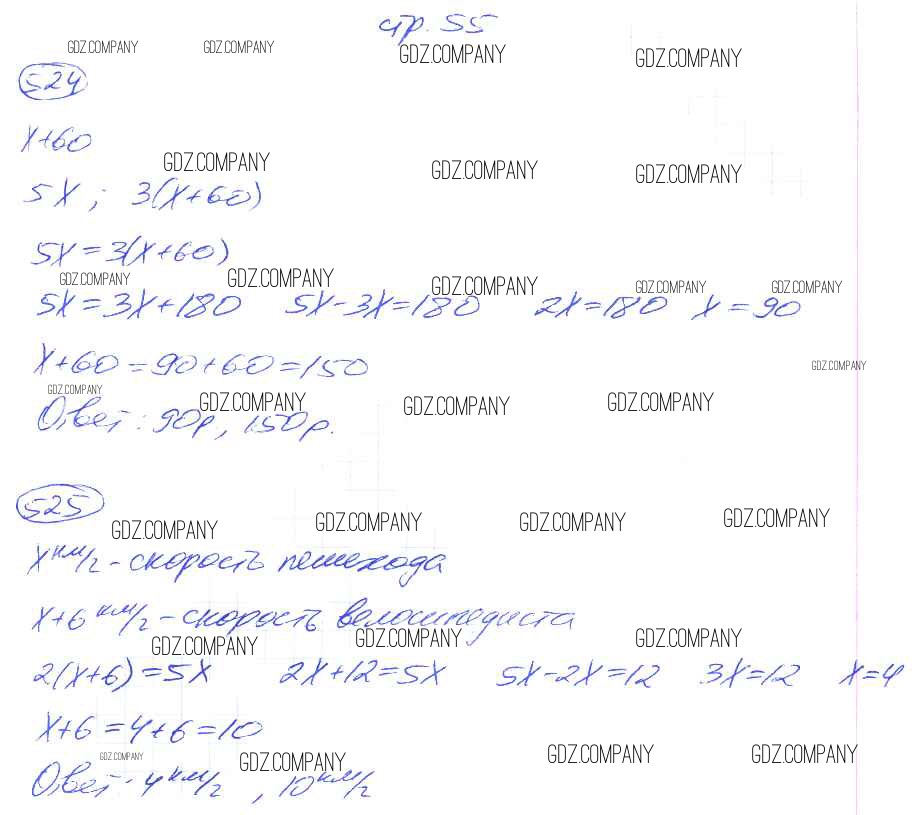 стр. 55
GDZ.COMPANY GDZ.COMPANY GDZ.COMPANY GDZ.COMPANY
524
x+60
GDZ.COMPANY GDZ.COMPANY GDZ.COMPANY
5x ; 3(x+60)
5x=3(x+60)
GDZ.COMPANY GDZ.COMPANY GDZ.COMPANY GDZ.COMPANY GDZ.COMPANY
5x=3x+180 5x-3x=180 2x=180 x=90
x+60=90+60=150
GDZ.COMPANY
GDZ.COMPANY GDZ.COMPANY GDZ.COMPANY GDZ.COMPANY
Ответ: 90р, 150р.
525
GDZ.COMPANY GDZ.COMPANY GDZ.COMPANY GDZ.COMPANY
x км/г - скорость пешехода
x+6 км/г - скорость велосипедиста
GDZ.COMPANY GDZ.COMPANY GDZ.COMPANY
2(x+6)=5x 2x+12=5x 5x-2x=12 3x=12 x=4
x+6=4+6=10
GDZ.COMPANY GDZ.COMPANY GDZ.COMPANY GDZ.COMPANY
Ответ: 4 км/г, 10 км/г